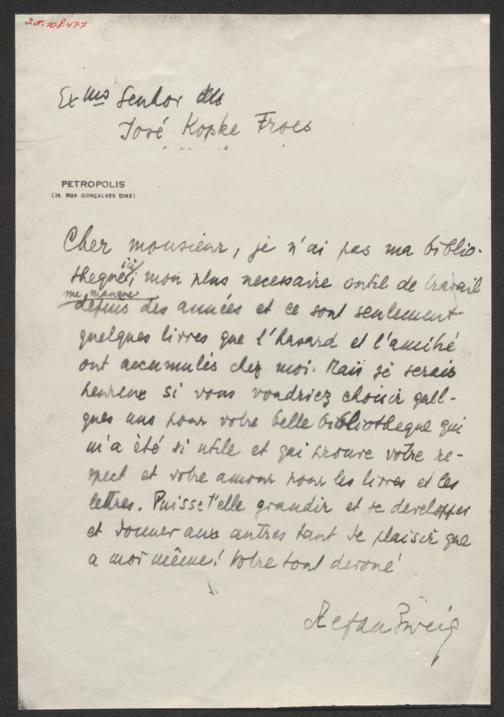 J.N. 108.477
Exmo Senhor
José Kopke Froes
PETROPOLIS
(34, RUA GONÇALVES DIAS)
Cher monsieur, je n'ai pas ma biblio-
theque ici, mon plus necessaire outil de travail
me manque
depuis des années et ce sont seulement
quelques livres que l'hasard et l'amitié
ont accumulés chez moi. Mais je serais
heureux si vous voudriez choisir quel-
ques uns pour votre belle bibliotheque qui
m'a été si utile et qui prouve votre re-
spect et votre amour pour les livres et les
lettres. Puisse t'elle grandir et se developper
et donner aux autres tant de plaisir que
a moi même! Votre tout devoué
Stefan Zweig